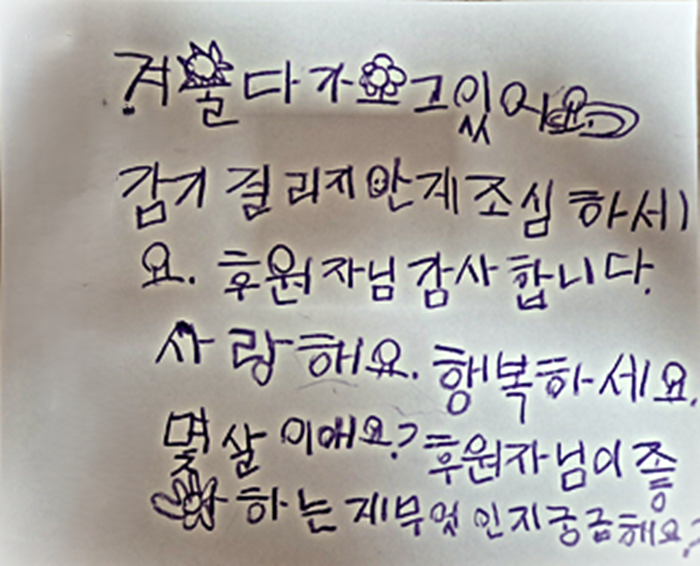 겨울 다가오고 있어요
감기 걸리지안게 조심 하세
요. 후원자님 감사 합니다.
사랑해요. 행복하세요.
몇살 이애요? 후원자님이 종
아하는 게무엇 인지궁금해요?